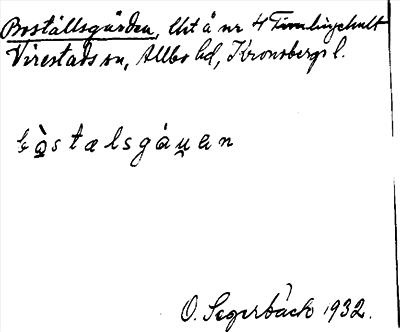 Boställsgården, Ust å nr 4 Timlingehult
Virestads sn, Allbo hd, Kronobergs l.
bòstælsgáu̯en
O. Segerbäck 1932.